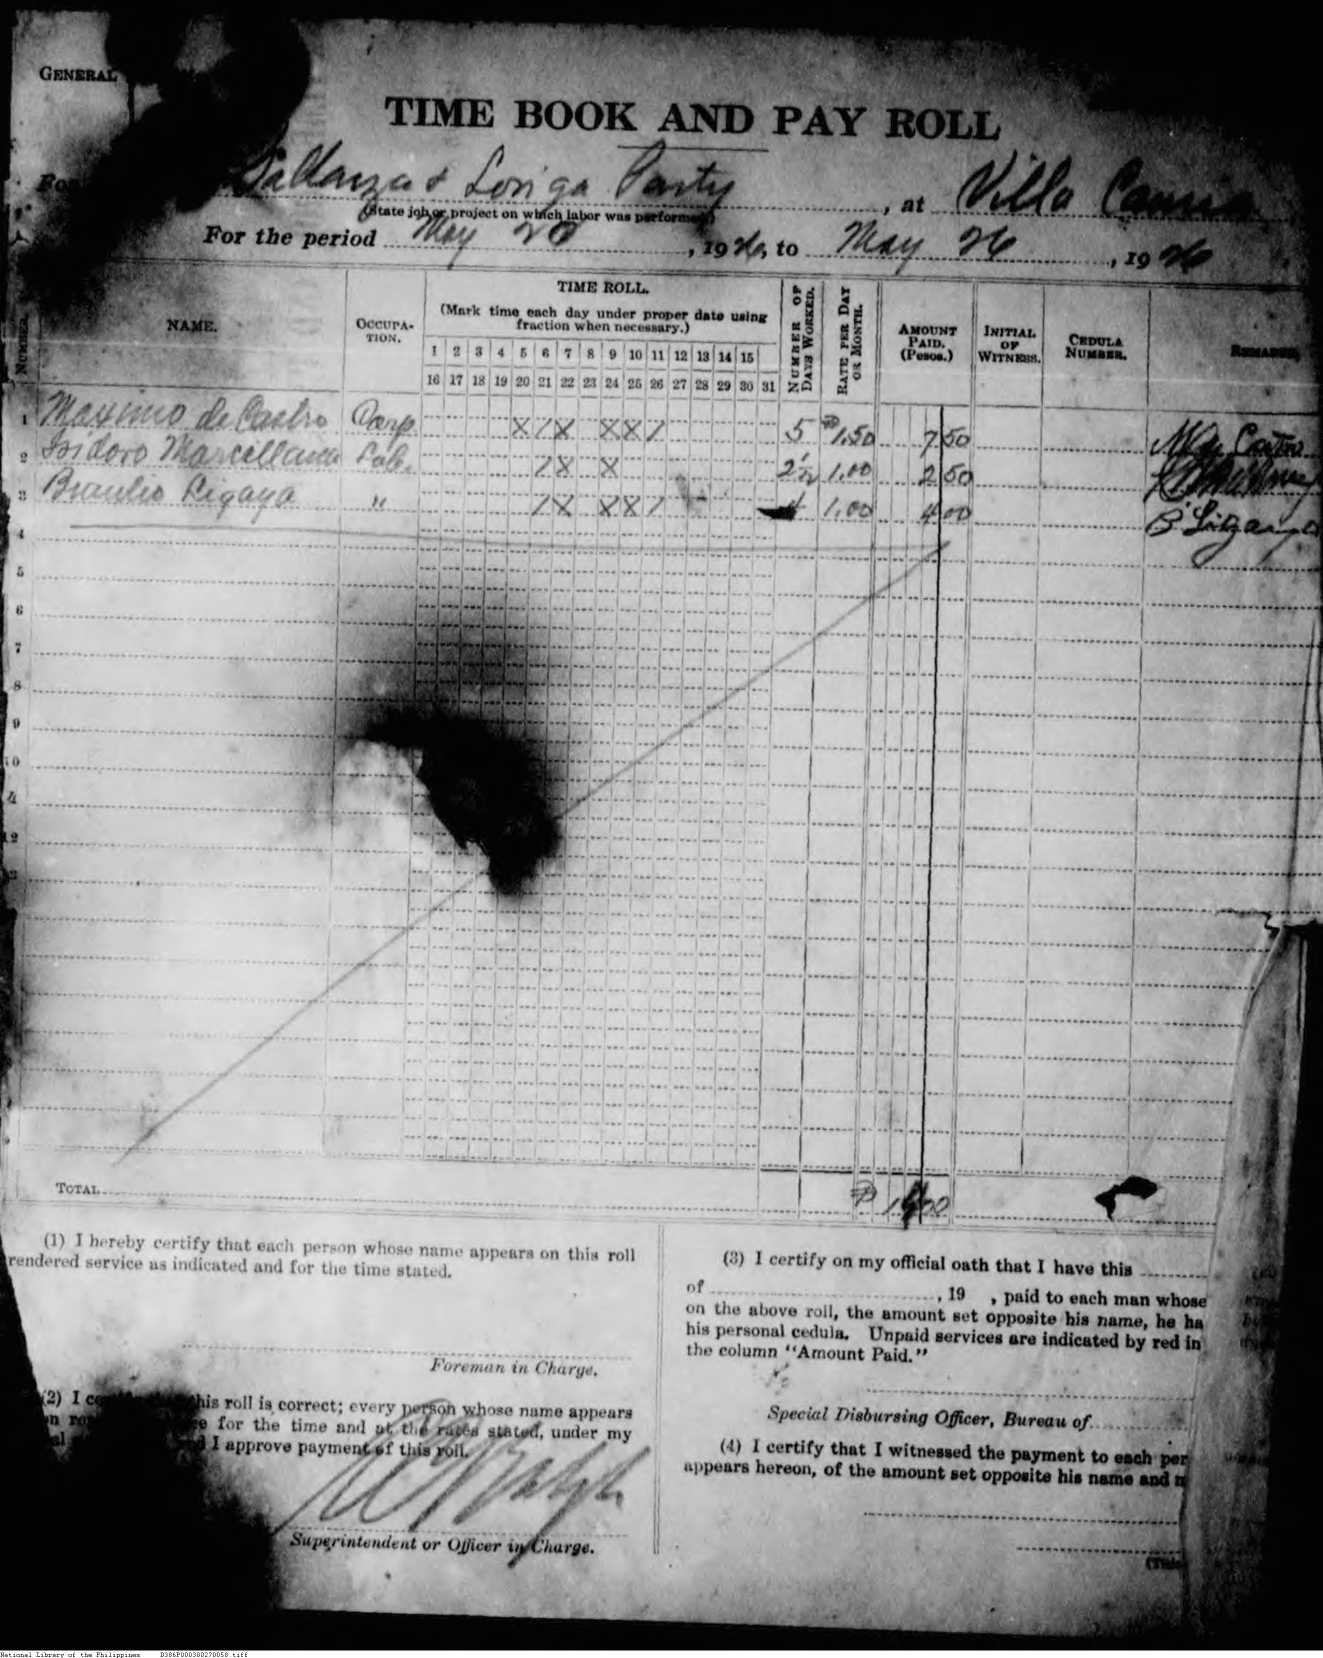 GENERAL
TIME BOOK AND PAY ROLL
& Loriga Party, at Villa
(State job or project on which labor was performed)
For the period May 20, 1926, to May 26, 1926
NUMBER. NAME. OCCUPA-TION. TIME ROLL. NUMBER OF DAYS WORKED. RATE PER DAY OR MONTH. AMOUNT PAID. (Pesos.) INITIAL OF WITNESS. CEDULA NUMBER. REMARKS.
(Mark time each day under proper date using fraction when necessary.)
1 2 3 4 5 6 7 8 9 10 11 12 13 14 15
16 17 18 19 20 21 22 23 24 25 26 27 28 29 30 31
1 Maximo de Castro Carp. X / X X X / 5 ₱1.50 7 50
2 Isidoro Marcellana Lab. / X X 2½ 1.00 2 50
3 Braulio Ligaya " / X X X / 4 1.00 4 00
4
5
6
7
8
9
10
12
TOTAL ₱ 14 00
(1) I hereby certify that each person whose name appears on this roll
rendered service as indicated and for the time stated.
Foreman in Charge.
(2) I his roll is correct; every person whose name appears
for the time and at the rates stated, under my
I approve payment of this roll.
Superintendent or Officer in Charge.
(3) I certify on my official oath that I have this
of , 19 , paid to each man whose
on the above roll, the amount set opposite his name, he ha
his personal cedula. Unpaid services are indicated by red in
the column "Amount Paid."
Special Disbursing Officer, Bureau of
(4) I certify that I witnessed the payment to each per
appears hereon, of the amount set opposite his name and
National Library of the Philippines D386P000380270058.tiff